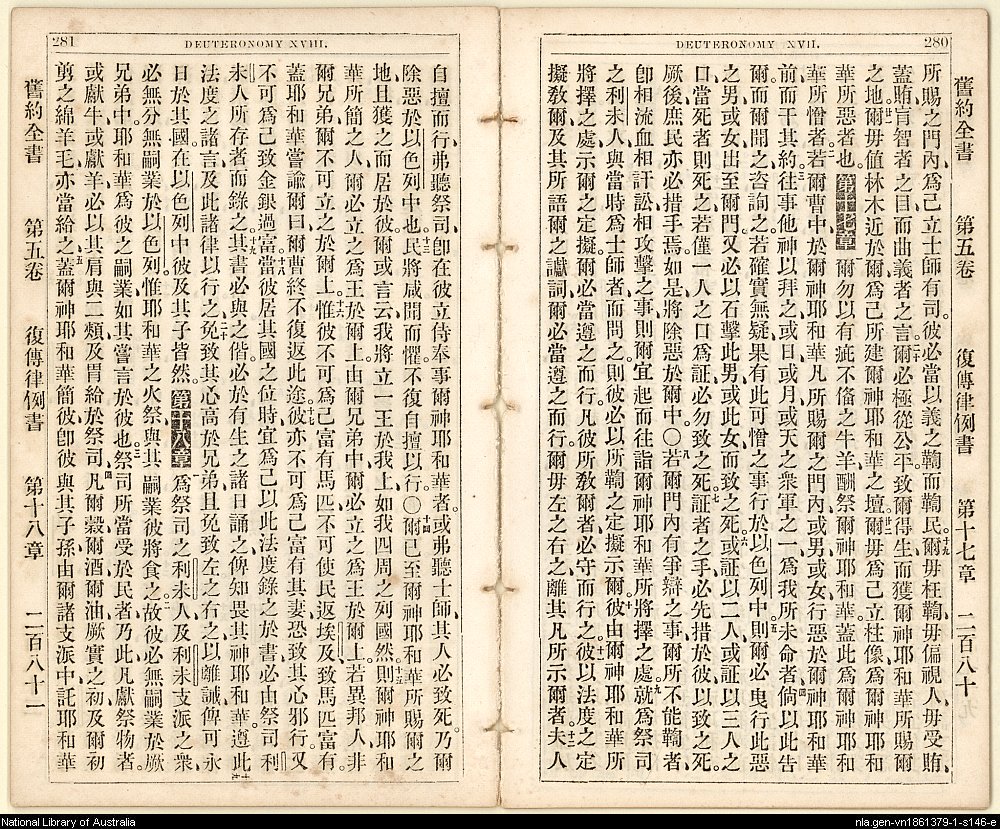 280
DEUTERONOMY XVII.
舊約全書 第五卷 復傳律例書 第十七章 二百八十
所賜之門內爲己立士師有司彼必當以義之鞫而鞫民十九爾毋枉鞫毋偏視人毋受賄
蓋賄盲智者之目而曲義者之言二十爾必極從公平致爾得生而獲爾神耶和華所賜爾
之地廿一爾毋值林木近於爾爲己所建爾神耶和華之壇廿二爾毋爲己立柱像爲爾神耶和
華所惡者也第十七章一爾勿以有疵不偹之牛羊酬祭爾神耶和華蓋此爲爾神耶和
華所憎者二若爾曹中於爾神耶和華凡所賜爾之門內或男或女行惡於爾神耶和華
前而干其約三往事他神以拜之或日或月或天之衆軍之一爲我所未命者四倘以此告
爾而爾聞之咨詢之若確實無疑果有此可憎之事行於以色列中五則爾必曳行此惡
之男或女出至爾門又必以石擊此男或此女而致之死六或証以二人或証以三人之
口當死者則死之若僅一人之口爲証必勿致之死七証者之手必先措於彼以致之死
厥後庶民亦必措手焉如是將除惡於爾中〇八若爾門內有爭辯之事爾所不能鞫者
卽相流血相訐訟相攻擊之事則爾宜起而往詣爾神耶和華所將擇之處九就爲祭司
之利未人與當時爲士師者而問之則彼必以所鞫之定擬示爾十彼由爾神耶和華所
將擇之處示爾之定擬爾必當遵之而行凡彼所敎爾者必守而行之十一彼以法度之定
擬敎爾及其所語爾之讞詞爾必當遵之而行毋左之右之離其凡所示爾者十二夫人
281
DEUTERONOMY XVIII.
自擅而行弗聽祭司卽在彼立侍奉事爾神耶和華者或弗聽士師其人必致死乃爾
除惡於以色列中也十三民將咸聞而懼不復自擅以行〇十四爾已至爾神耶和華所賜爾之
地且獲之而居於彼爾或言云我將立一王於我上如我四周之列國然十五則爾神耶和
華所簡之人爾必立之爲王於爾上由爾兄弟中爾必立之爲王於爾上若異邦人非
爾兄弟爾不可立之於爾上十六惟彼不可爲己富有馬匹不可使民返埃及致馬匹富有
蓋耶和華嘗諭爾曰爾曹終不復返此途十七彼亦不可爲己富有其妻恐致其心邪行又
不可爲己致金銀過富十八當彼居其國之位時宜爲己以此法度錄之於書必由祭司利
未人所存者而錄之十九其書必與之偕必於有生之諸日誦之俾知畏其神耶和華遵此
法度之諸言及此諸律以行之二十免致其心高於兄弟且免致左之右之以離誡俾可永
日於其國在以色列中彼及其子皆然第十八章一爲祭司之利未人及利未支派之衆
必無分無嗣業於以色列惟耶和華之火祭與其嗣業彼將食之二故彼必無嗣業於厥
兄弟中耶和華爲彼之嗣業如其嘗言於彼也三祭司所當受於民者乃此凡獻祭物者
或獻牛或獻羊必以其肩與二頰及胃給於祭司四凡爾穀爾酒爾油厥實之初及爾初
剪之綿羊毛亦當給之五蓋爾神耶和華簡彼卽彼與其子孫由爾諸支派中託耶和華
舊約全書 第五卷 復傳律例書 第十八章 二百八十一
National Library of Australia
nla.gen-vn1861379-1-s146-e